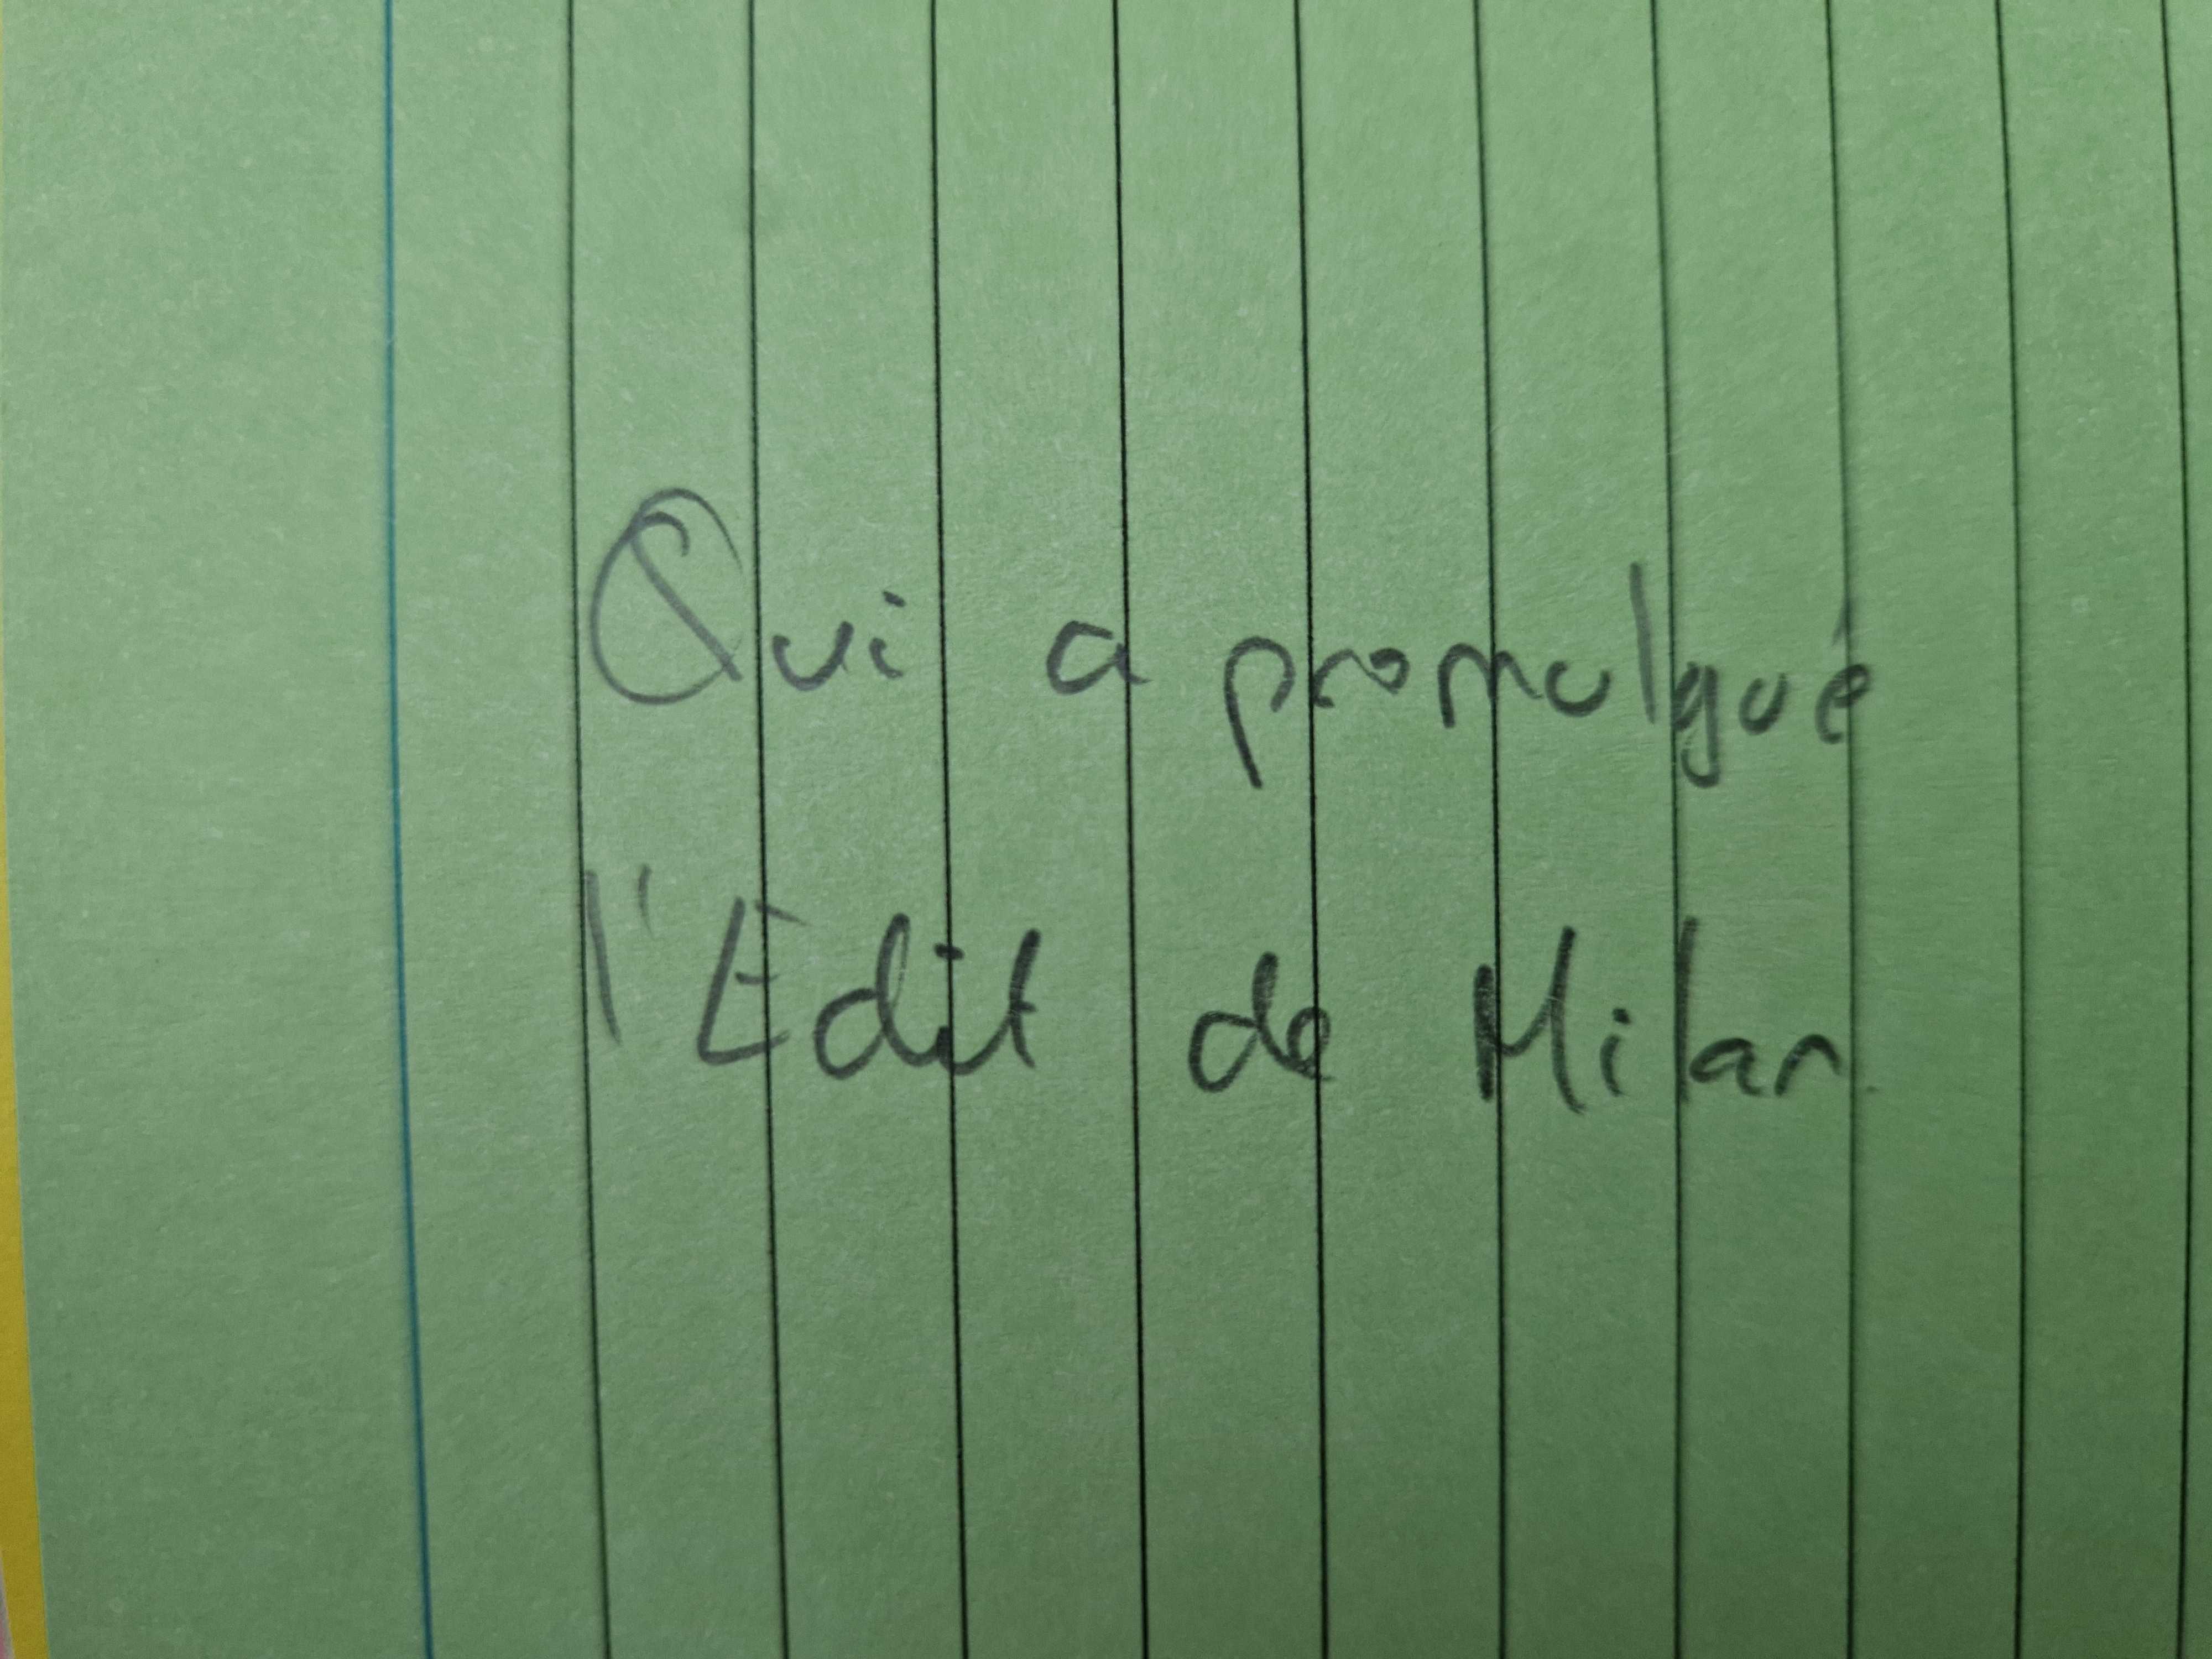 Qui a promulgué
l'Edit de Milan